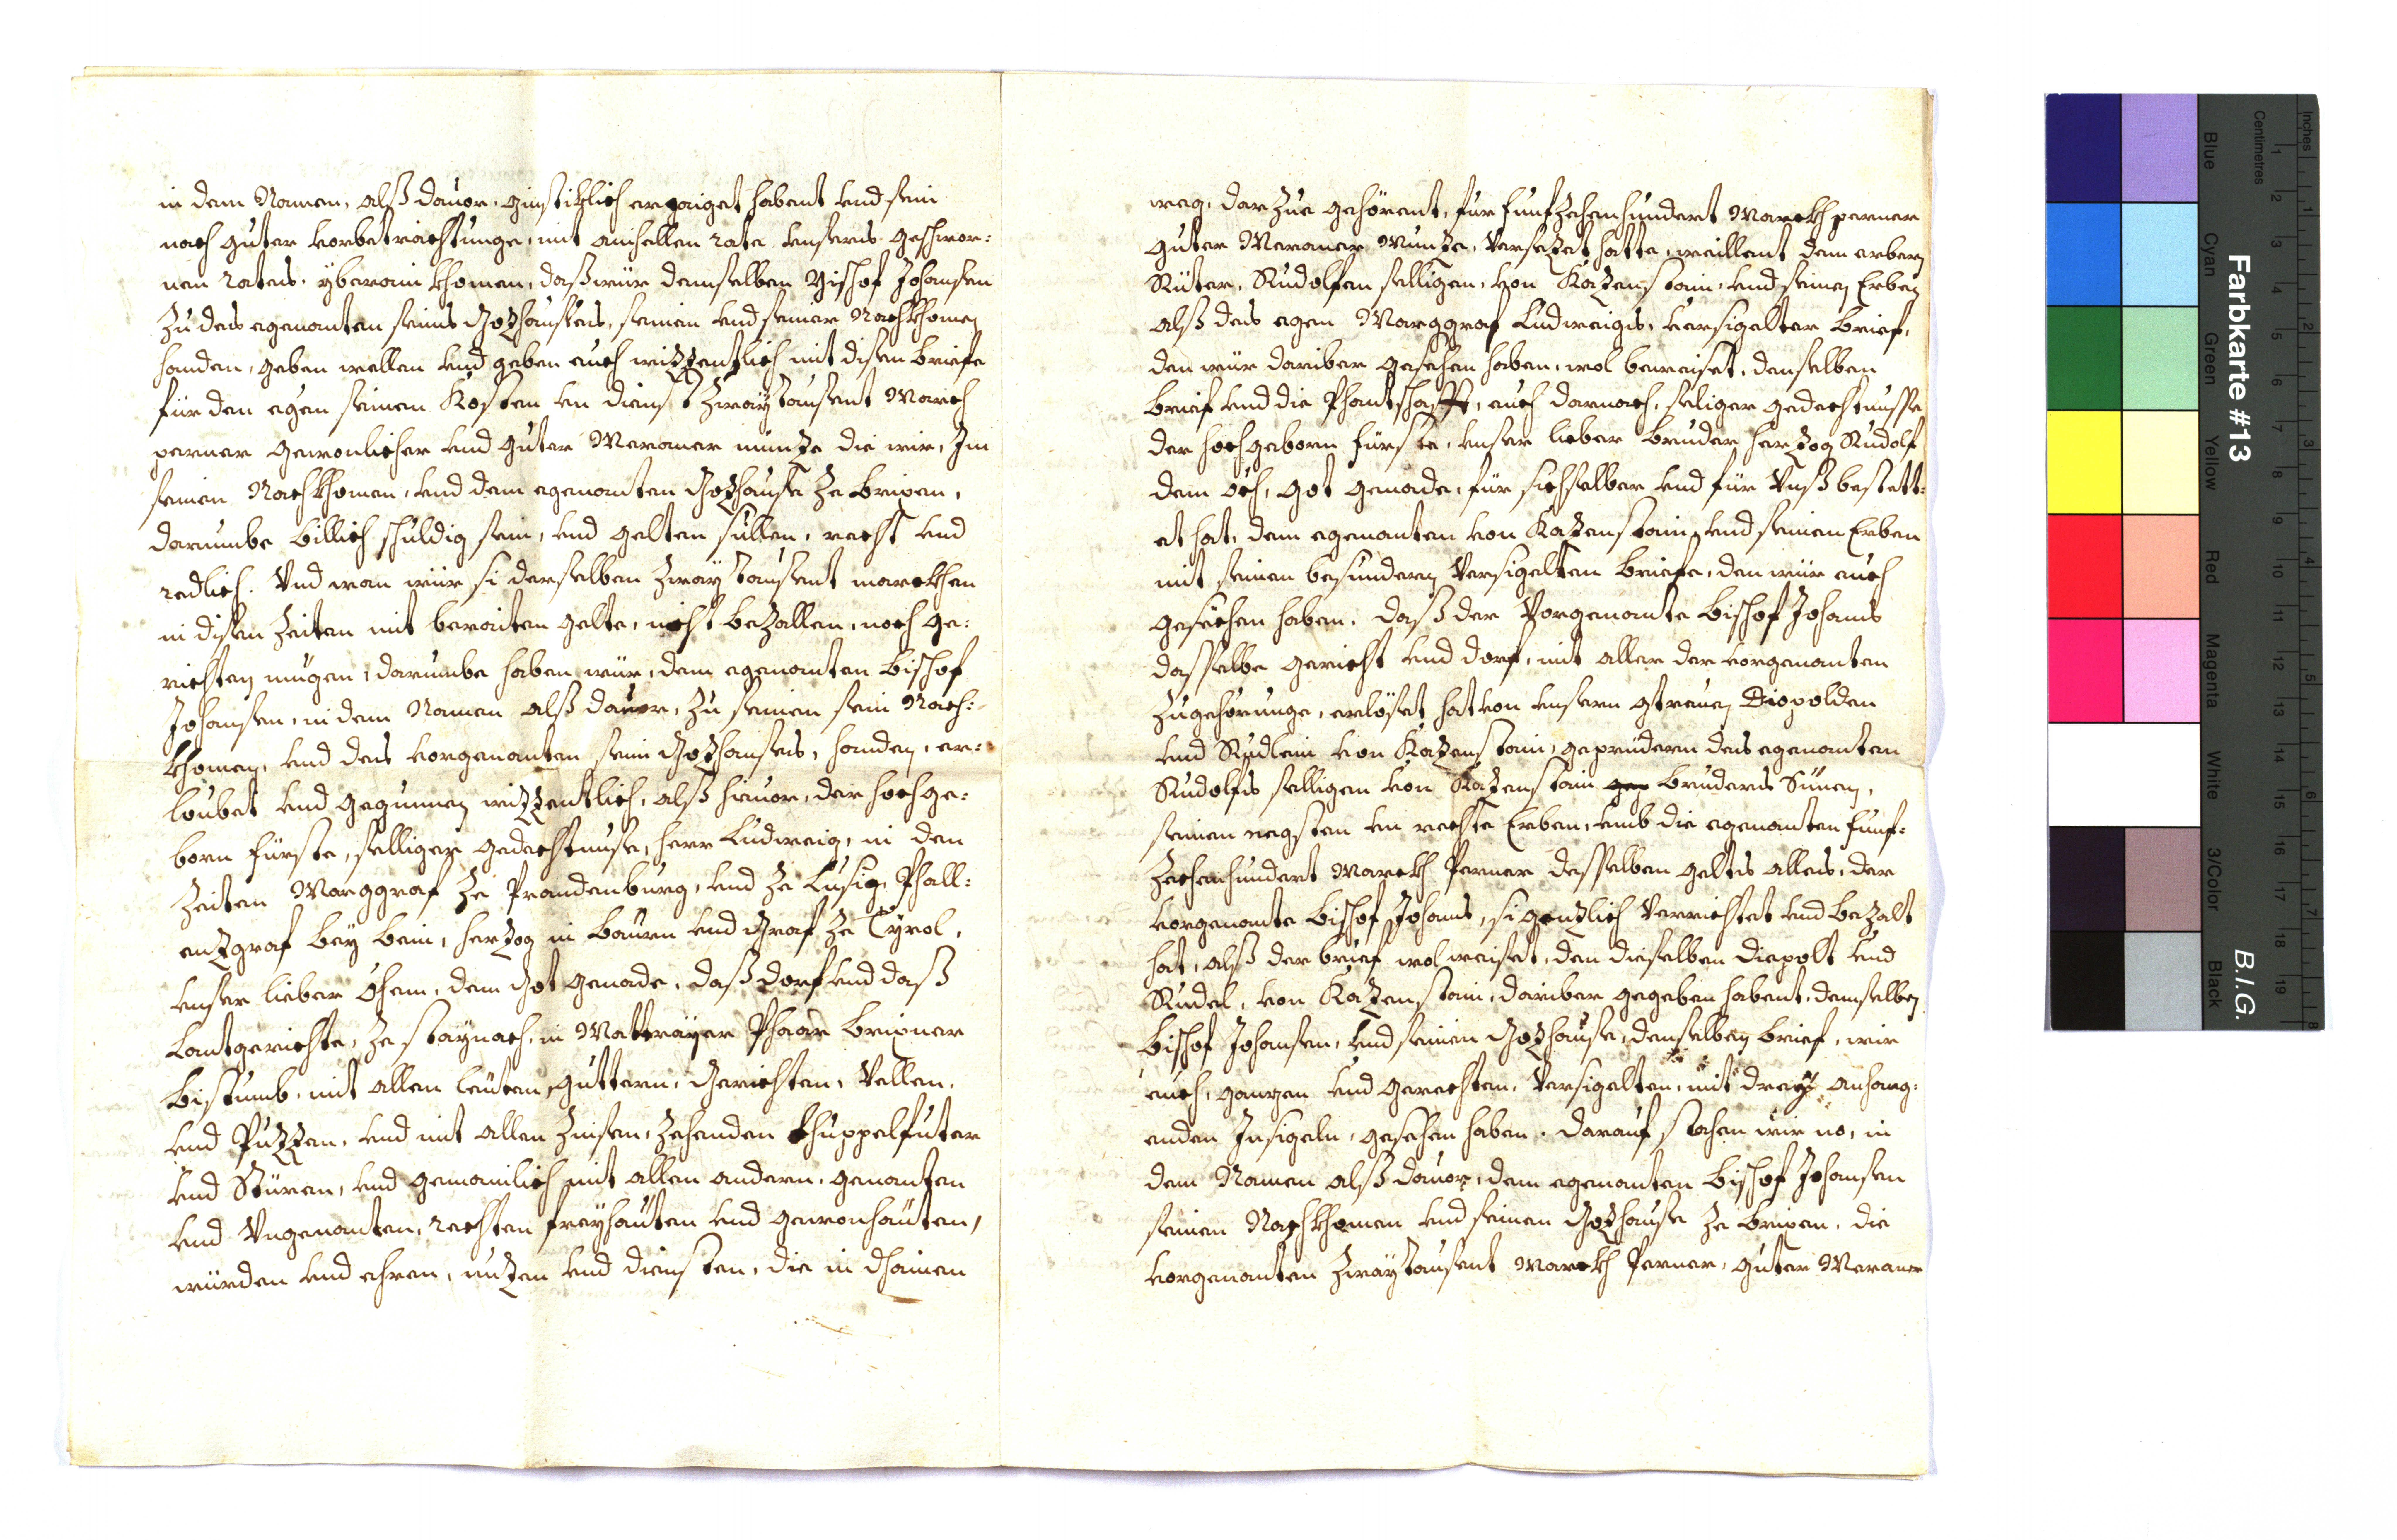 in dem Namen, alß dauor, ginstiklich erzaiget habent vnd sein
nach guter vorbetrachtunge, mit ainhellen rate vnsers geschwor:
nen rates, yberain khomen, daß wür demselben Bischof Johansen
zu des egenanten seins Gozhauses, seinen vnd seiner Nachkhomen
handen, geben wellen vnd geben auch wizzentlich mit disen briefe
für den egen seinen Kosten vn dienst zwaÿtausent March
perner gewonlicher vnd guter Meraner münze die wir, Im
seinen Nachkhomen, vnd dem egenanten Gozhause ze brixen,
darumbe billich schuldig sein, vnd gelten süllen, recht vnd
redlich. Vnd wan wür si derselben zwaÿ tausent markhen
in disen Zeiten mit beraiten gelte, nicht bezallen, noch ge:
richten mügen, darumbe haben wür, dem egenanten bischof
Johansen, in dem Namen alß dauor, zu seinen sein Nach:
khomen, vnd des vorgenanten sein Gozhauses, handen, er:
loubet vnd gegunnen wizzentlich, alß hieuor, der hochge:
born fürste, selliger gedechtnuse, herr Ludweig, in den
Zeiten Marggraf ze Prandenburg, vnd ze Lusig, Phall:
enzgraf beÿ Rein, herzog in bairn vnd Graf ze Tyrol,
vnser lieber Öhem, dem Got genade, daß dorf vnd daß
Lantgerichte, ze staÿnach, in Mattraÿer Pharr brixner
bistumb, mit allen leüten, güttern, Gerichten, Vellen,
vnd Puzzen, vnd mit allen Zinsen, Zehenden khuppelfuter
vnd Stüren, vnd gemainlich mit allen andern, genanten
vnd Vngenanten, rechten freÿhaiten vnd gewonhaiten,
würden vnd ehren, nuzen vnd diensten, die in dhainen
weg, darzue gehörent, für funfzehenhundert Markh perner
guter Meraner Munze, Versezet hatte, weillent dem erbern
Ritter, Rudolfen selligen, von Kazenstain, vnd seinen Erben
alß des egen Marggraf Ludweigs, versigelter brief,
den wür dariber gesehen haben, wol beweiset, denselben
brief vnd die Phantschafft, auch darnach, seliger gedechtnusse
der hochgeborn fürste, vnser lieber bruder herzog Rudolf
dem och, Got genade, für sichselber vnd für Vnß bestett:
et hat, dem egenanten von Kazenstain, vnd seinen Erben
mit seinen besundern Versigelten briefe, den wür auch
gesechen haben. daß der Vorgenante bischof Johans
dasselbe gericht vnd dorf, mit aller der vorgenanten
zugehörunge, erlöset hat von vnsern getreuen Diepolden
vnd Rudlein von Kazenstain, geprüdern des egenanten
Rudolfs selligen von Kazenstain bruders Sünen,
seinen negsten vn rechte Erben, vmb die egenanten funf:
zechenhundert Markh Perner desselben gelts alles, der
vorgenante bischof Johans, si genzlich Verrichtet vnd bezalt
hat, alß der brief wol weiset, den dieselben Diepolt vnd
Rudel, von Kazenstain, dariber gegeben habent, demselben
bischof Johansen, vnd seinen Gozhause, denselben brief, wir
auch, ganzen vnd gerechten, Versigelten, mit dreÿ anhang:
enden Insigeln, gesehen haben. darauf slahen wir no, in
dem Namen alß dauor, dem egenanten bischof Johansen
seinen Nachkhomen vnd seinen Gozhause ze brixen, die
vorgenanten zwaÿtausent Markh Perner, guter Meraner
Farbkarte #13
B.I.G.
Inches
Centimetres
1 2 3 4 5 6 7 8
1 2 3 4 5 6 7 8 9 10 11 12 13 14 15 16 17 18 19
Blue
Cyan
Green
Yellow
Red
Magenta
White
3/Color
Black